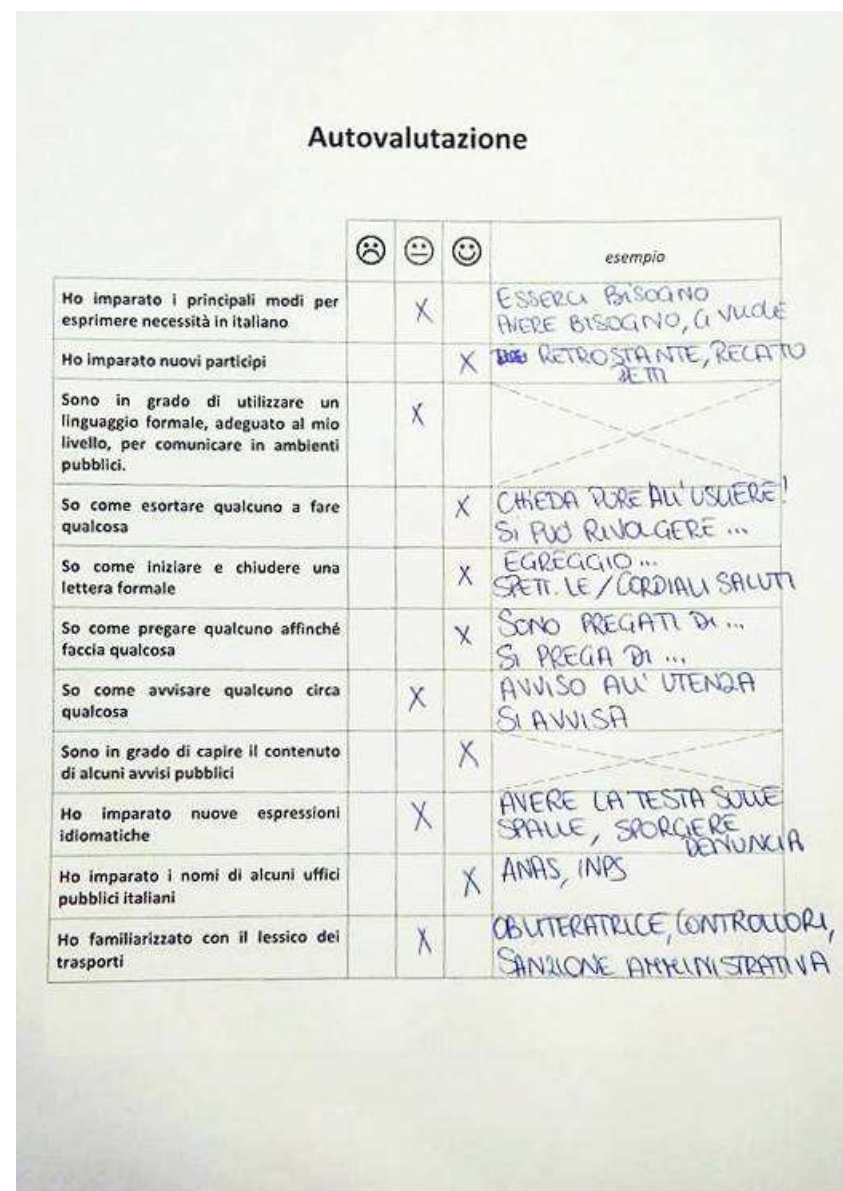 Autovalutazione
esempio
Ho imparato i principali modi per
esprimere necessità in italiano
X
ESSERCI BISOGNO
AVERE BISOGNO, CI VUOLE
Ho imparato nuovi participi
X
RETROSTANTE, RECATO
DETTI
Sono in grado di utilizzare un
linguaggio formale, adeguato al mio
livello, per comunicare in ambienti
pubblici.
X
So come esortare qualcuno a fare
qualcosa
X
CHIEDA PURE ALL'USCIERE!
SI PUÒ RIVOLGERE ...
So come iniziare e chiudere una
lettera formale
X
EGREGGIO ...
SPETT. LE / CORDIALI SALUTI
So come pregare qualcuno affinché
faccia qualcosa
X
SONO PREGATI DI ...
SI PREGA DI ...
So come avvisare qualcuno circa
qualcosa
X
AVVISO ALL' UTENZA
SI AVVISA
Sono in grado di capire il contenuto
di alcuni avvisi pubblici
X
Ho imparato nuove espressioni
idiomatiche
X
AVERE LA TESTA SULLE
SPALLE, SPORGERE
DENUNCIA
Ho imparato i nomi di alcuni uffici
pubblici italiani
X
ANAS, INPS
Ho familiarizzato con il lessico dei
trasporti
X
OBLITERATRICE, CONTROLLORI,
SANZIONE AMMINISTRATIVA